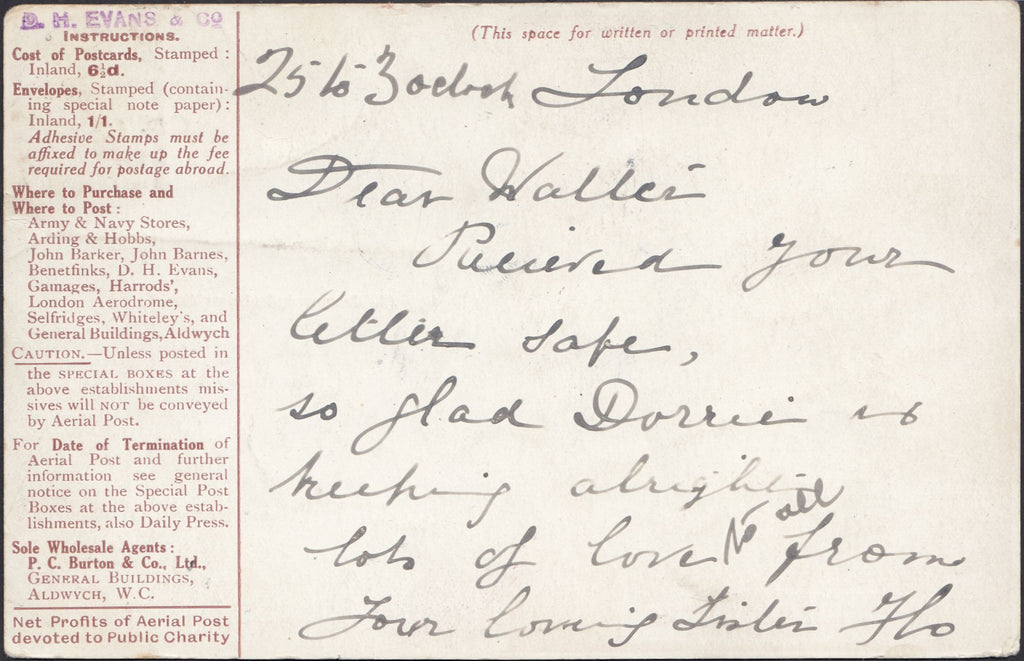 D. H. EVANS & Co
INSTRUCTIONS.
Cost of Postcards, Stamped :
Inland, 6½d.
Envelopes, Stamped (contain-
ing special note paper) :
Inland, 1/1.
Adhesive Stamps must be
affixed to make up the fee
required for postage abroad.
Where to Purchase and
Where to Post :
Army & Navy Stores,
Arding & Hobbs,
John Barker, John Barnes,
Benetfinks, D. H. Evans,
Gamages, Harrods',
London Aerodrome,
Selfridges, Whiteley's, and
General Buildings, Aldwych
CAUTION.—Unless posted in
the SPECIAL BOXES at the
above establishments mis-
sives will NOT be conveyed
by Aerial Post.
For Date of Termination of
Aerial Post and further
information see general
notice on the Special Post
Boxes at the above estab-
lishments, also Daily Press.
Sole Wholesale Agents :
P. C. Burton & Co., Ltd.,
GENERAL BUILDINGS,
ALDWYCH, W.C.
Net Profits of Aerial Post
devoted to Public Charity
(This space for written or printed matter.)
25 to 3 oclock London
Dear Walter
Recieved your
letter safe,
so glad Dorrie is
keeping alright
lots of love to all from
Your loving Sister Flo